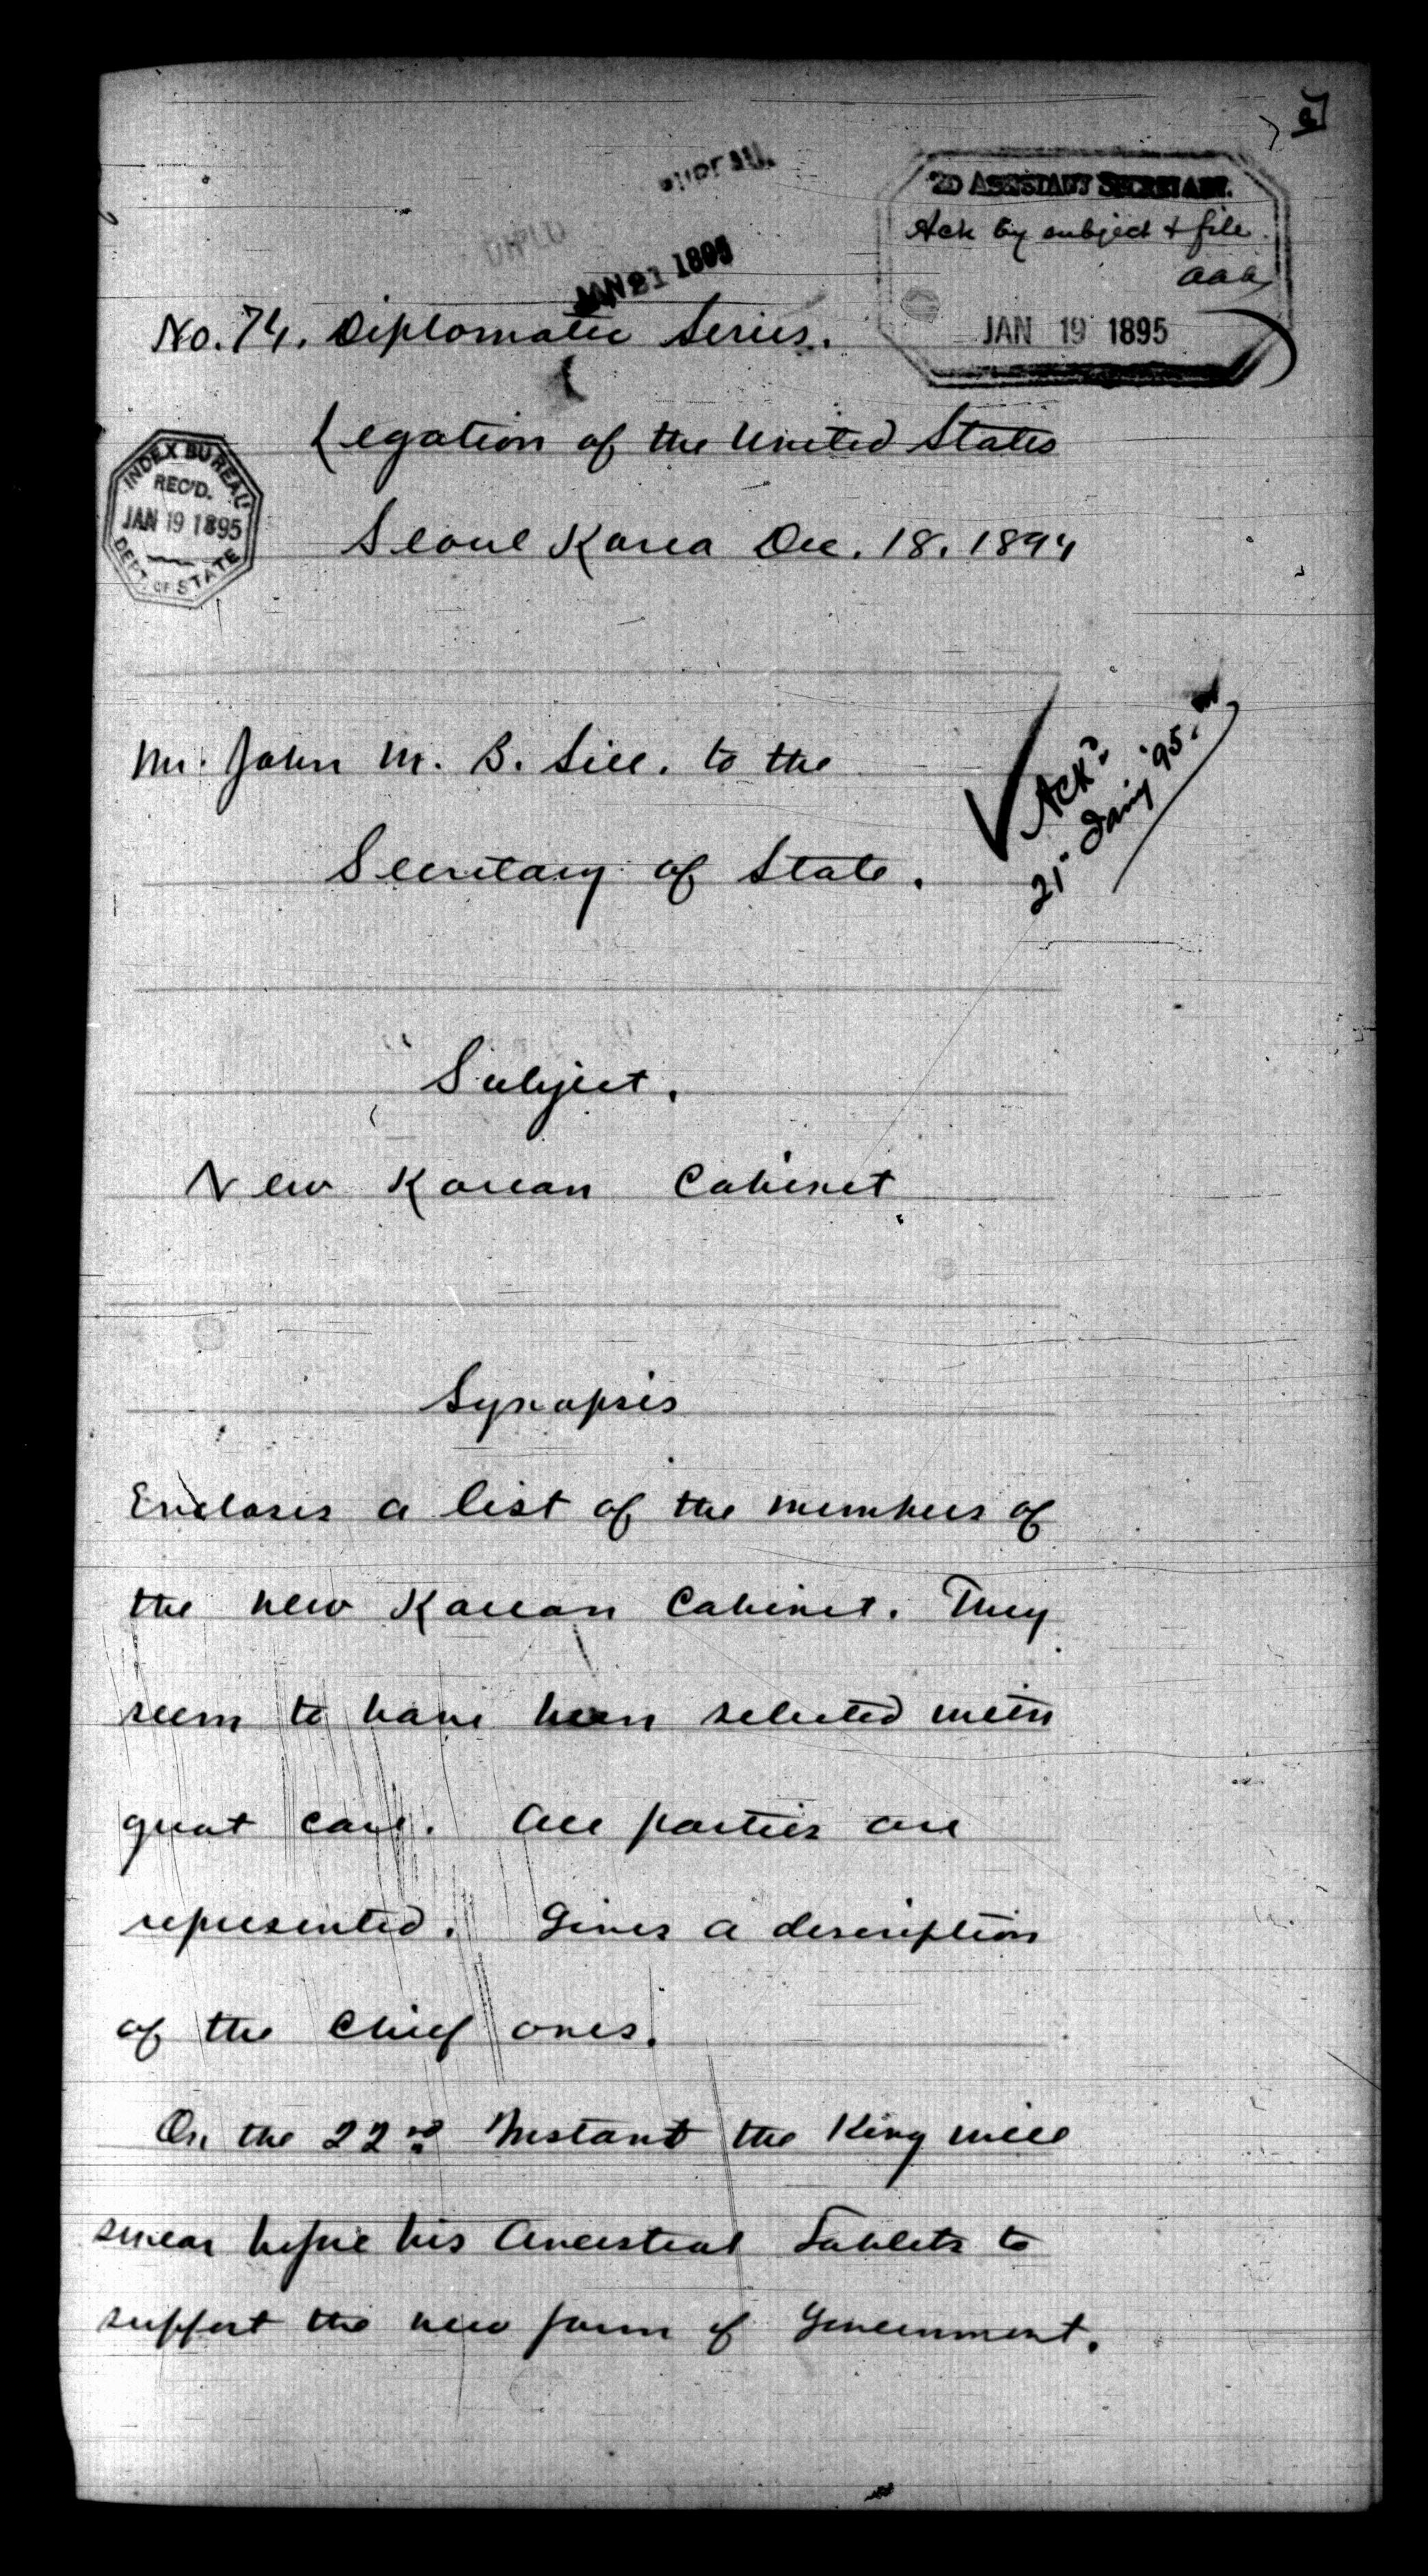 2D ASSISTANT SECRETARY.
Ack by subject & file.
aaa
JAN 19 1895
BUREAU.
DIPLO
JAN 21 1895
No. 74. Diplomatic Series.
Legation of the United States
INDEX BUREAU
REC'D.
JAN 19 1895
DEPT. OF STATE
Seoul Korea Dec. 18. 1894
Mr. John M. B. Sill. to the
Secretary of State.
Ack'd
21" Jany '95.
Subject.
New Korean Cabinet
Synopsis
Encloses a list of the members of
the new Korean Cabinet. They
seem to have been selected with
great care. All parties are
represented. Gives a description
of the chief ones.
On the 22nd Instant the King will
swear before his Ancestral Tablets to
support the new form of Government.